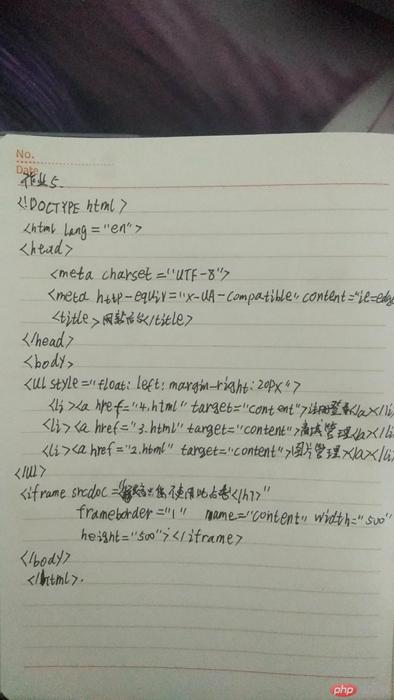 No.
Date
作业5.
<!DOCTYPE html>
<html lang="en">
<head>
<meta charset="UTF-8">
<meta http-equiv="X-UA-Compatible" content="ie=edge
<title>网站后台</title>
</head>
<body>
<ul style="float: left; margin-right: 20px">
<li><a href="4.html" target="content">注册登录</a></li
<li><a href="3.html" target="content">管理</a></li
<li><a href="2.html" target="content">图片管理</a></li
</ul>
<iframe srcdoc="</h1>"
frameborder="1" name="content" width="500"
height="500"></iframe>
</body>
</html>.
php